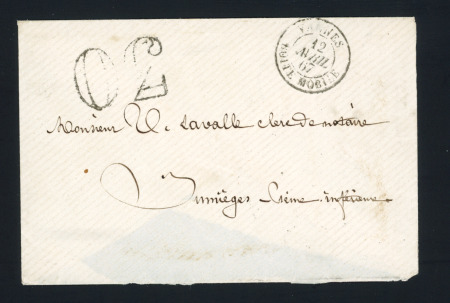 VANNES
12
AVRIL
67
BOITE MOBILE
30
Monsieur V. Lavalle clerc de notaire
Jumièges Seine inférieure